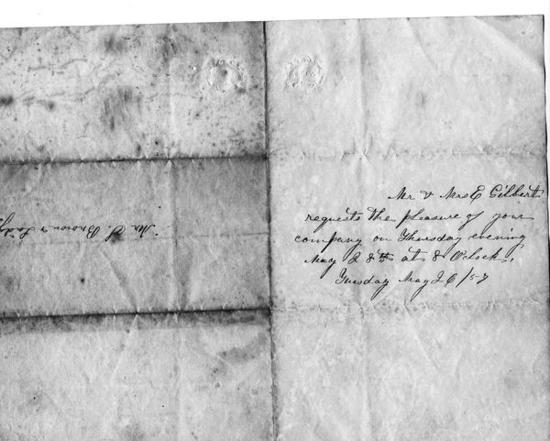 Mr & Mrs E Gilbert
requests the pleasure of your
company on Thursday evening
May 28th at 8 Oclock.
Tuesday May 26/57
Mr S Brown & Lady